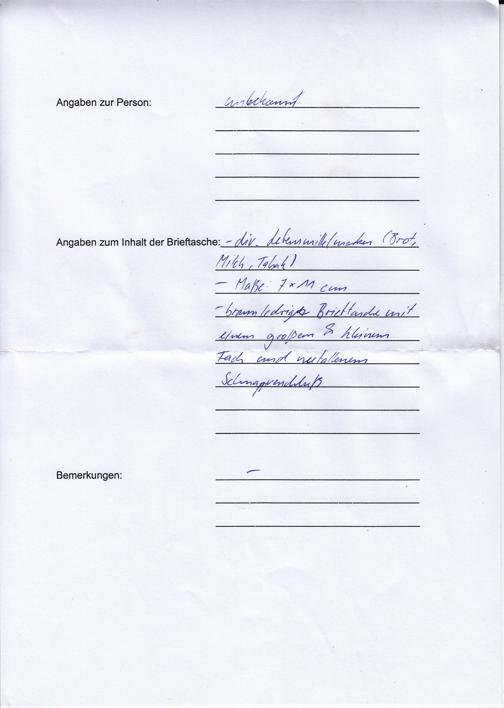 Angaben zur Person: unbekannt
Angaben zum Inhalt der Brieftasche: - div. Lebensmittelmarken (Brot,
Milch, Tabak)
- Maße: 7 x 11 cm
- braun/ledrige Brieftasche mit
einem großem & kleinem
Fach und metallenem
Schnappverschluß
Bemerkungen: -